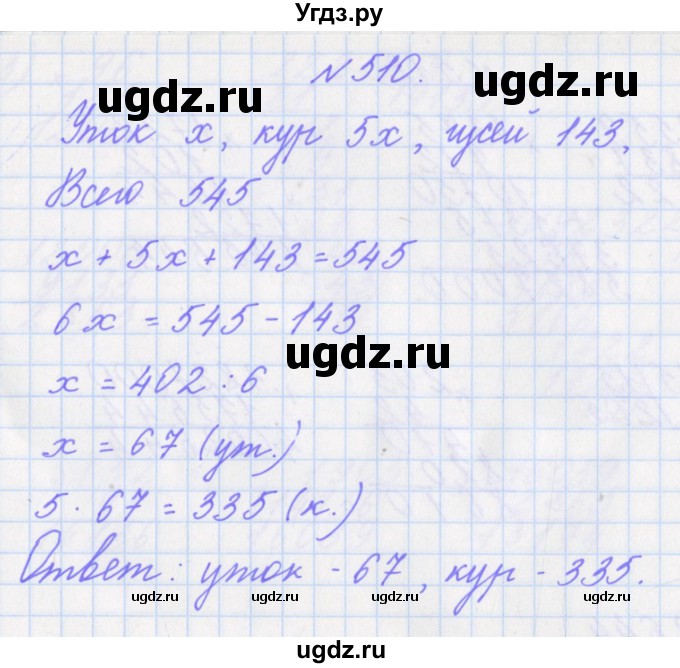 Угдз.ру
№510.
Уток x, кур 5x, гусей 143,
Всего 545
x + 5x + 143 = 545
6x = 545 - 143
x = 402 : 6
x = 67 (ут.)
5 · 67 = 335 (к.)
Ответ: уток - 67, кур - 335.
ugdz.ru
ugdz.ru
ugdz.ru
ugdz.ru ugdz.ru ugdz.ru ugdz.ru
ugdz.ru